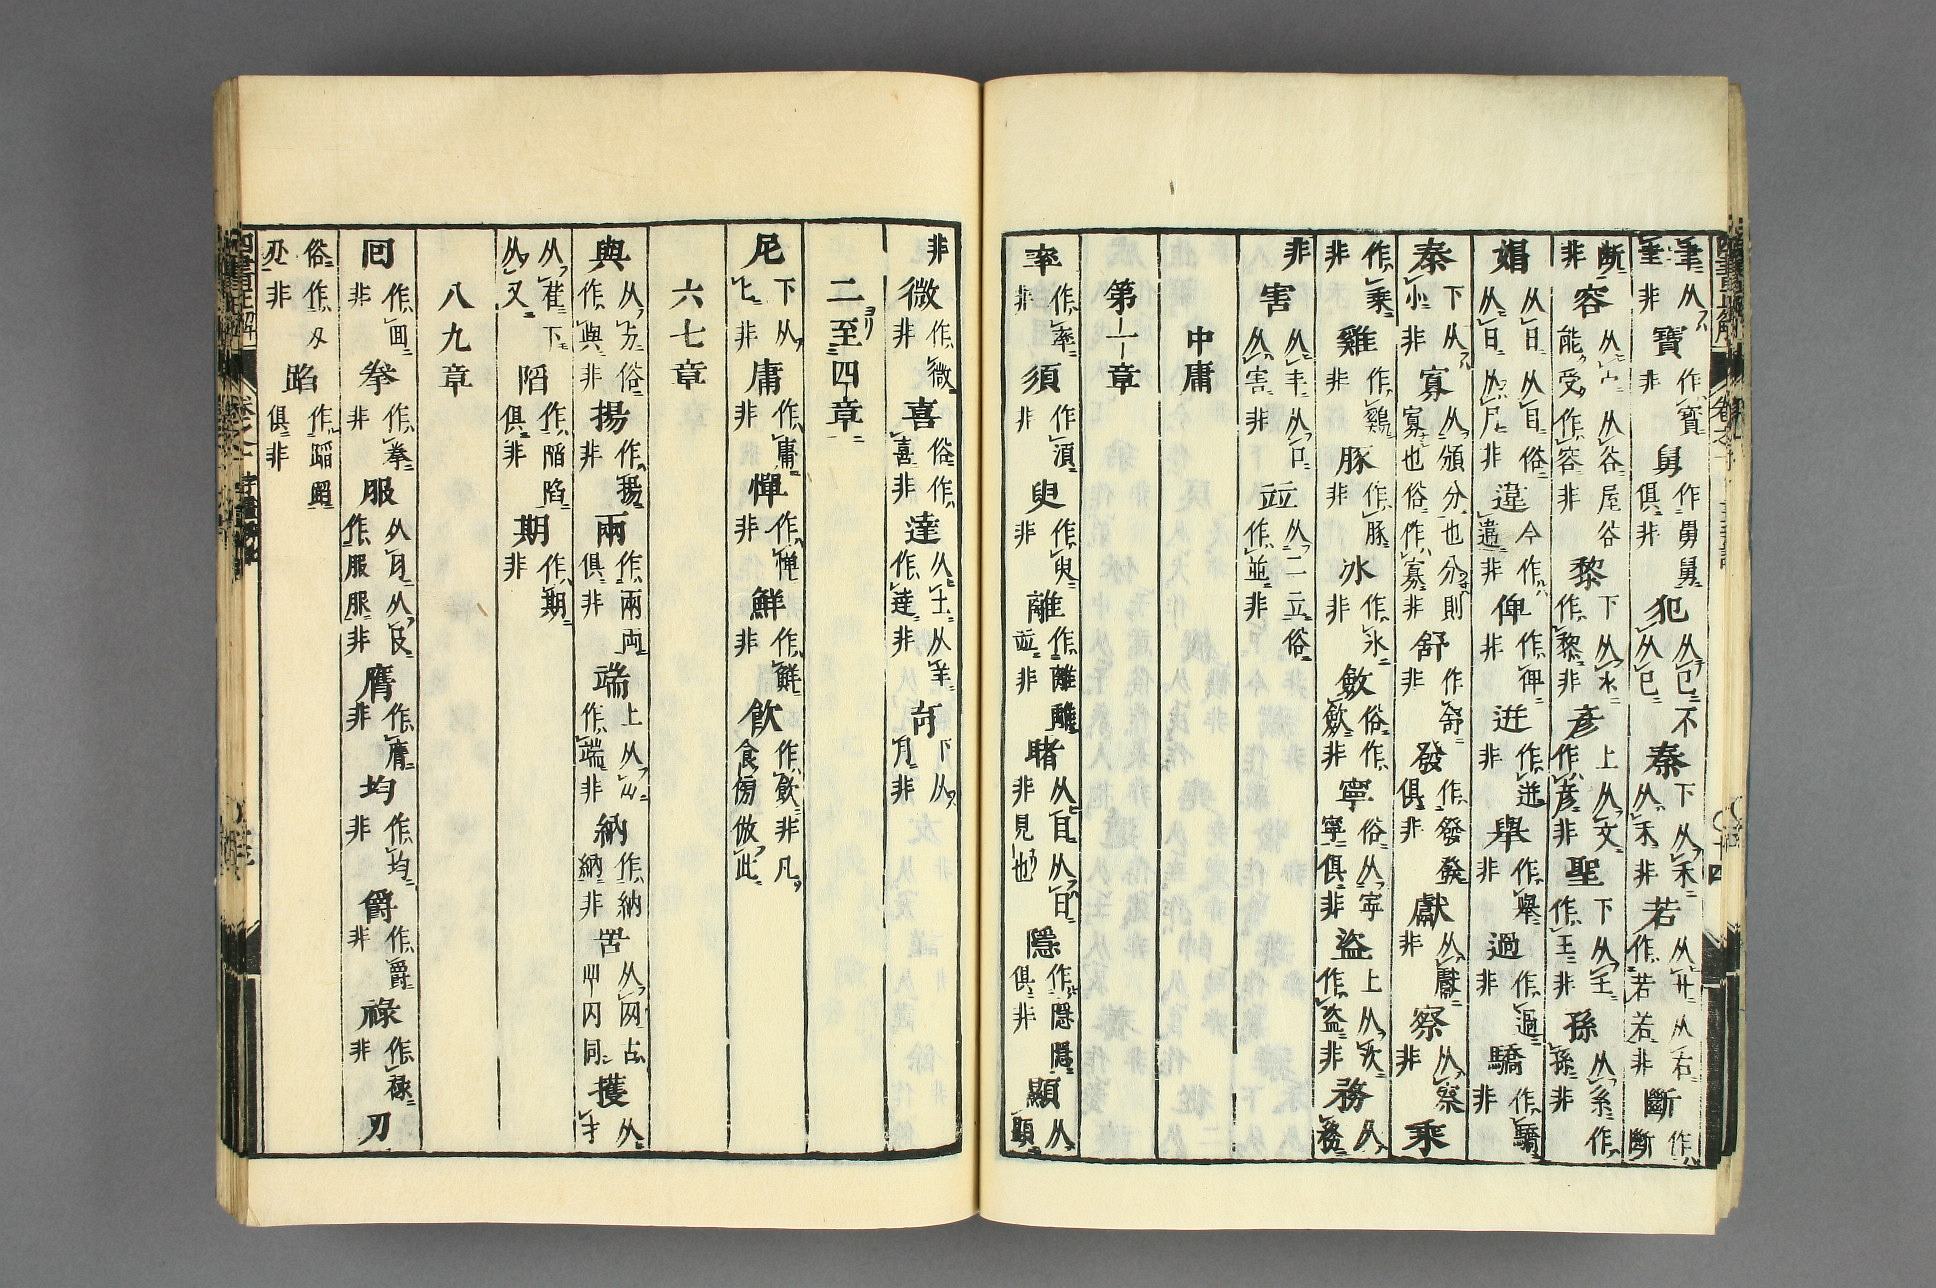 𦘠从⺺ 𦘠非 寶作寳非 舅作舅舅俱非 犯从㔾不从巳 秦下从禾从禾非 若从艹从右作若若非 斷作
断非 容从宀从谷屋谷能受作容非 黎下从氺作黎非 彦上从文作彦非 聖下从𡈼作王非 孫从系作孫非
娼从日从目俗从日从尸非 違今作違非 俾作俾非 迸作迸非 舉作舉非 過作過非 驕作驕非
秦下从小非 寡从頒分也分則寡也俗作寡非 舒作舒非 發作發發俱非 獻从鬳非 察从察非 乘
作乗非 雞作鷄非 豚作豚非 冰作氷非 斂俗作歛非 寧俗从寧寧俱非 盜上从次作盗非 務从務
非 害从丯从口从害非 竝从二立俗作並非
中庸
第一章
率作率非 須作湏非 臾作臾非 離作離離竝非 睹从目从日非見也 隱作隠隱俱非 顯从顕
非 微作微非 喜俗作喜非 達从土从羊作達非 育下从月非
二至四章
尼下从匕非 庸作庸非 憚作憚非 鮮作鮮非 飮作飲非凡食傍倣此
六七章
與从与俗作與非 揚作揚非 兩作兩両俱非 端上从山作端非 納作納納非 罟从网古𠔿冈同 擭从扌
从萑下从又 䧟作陷陷俱非 期作期非
八九章
回作囬非 拳作拳非 服从月从𠬝作服服非 膺作膺非 均作均非 爵作爵非 祿作禄非 刃
俗作刄刃非 蹈作蹈蹈俱非